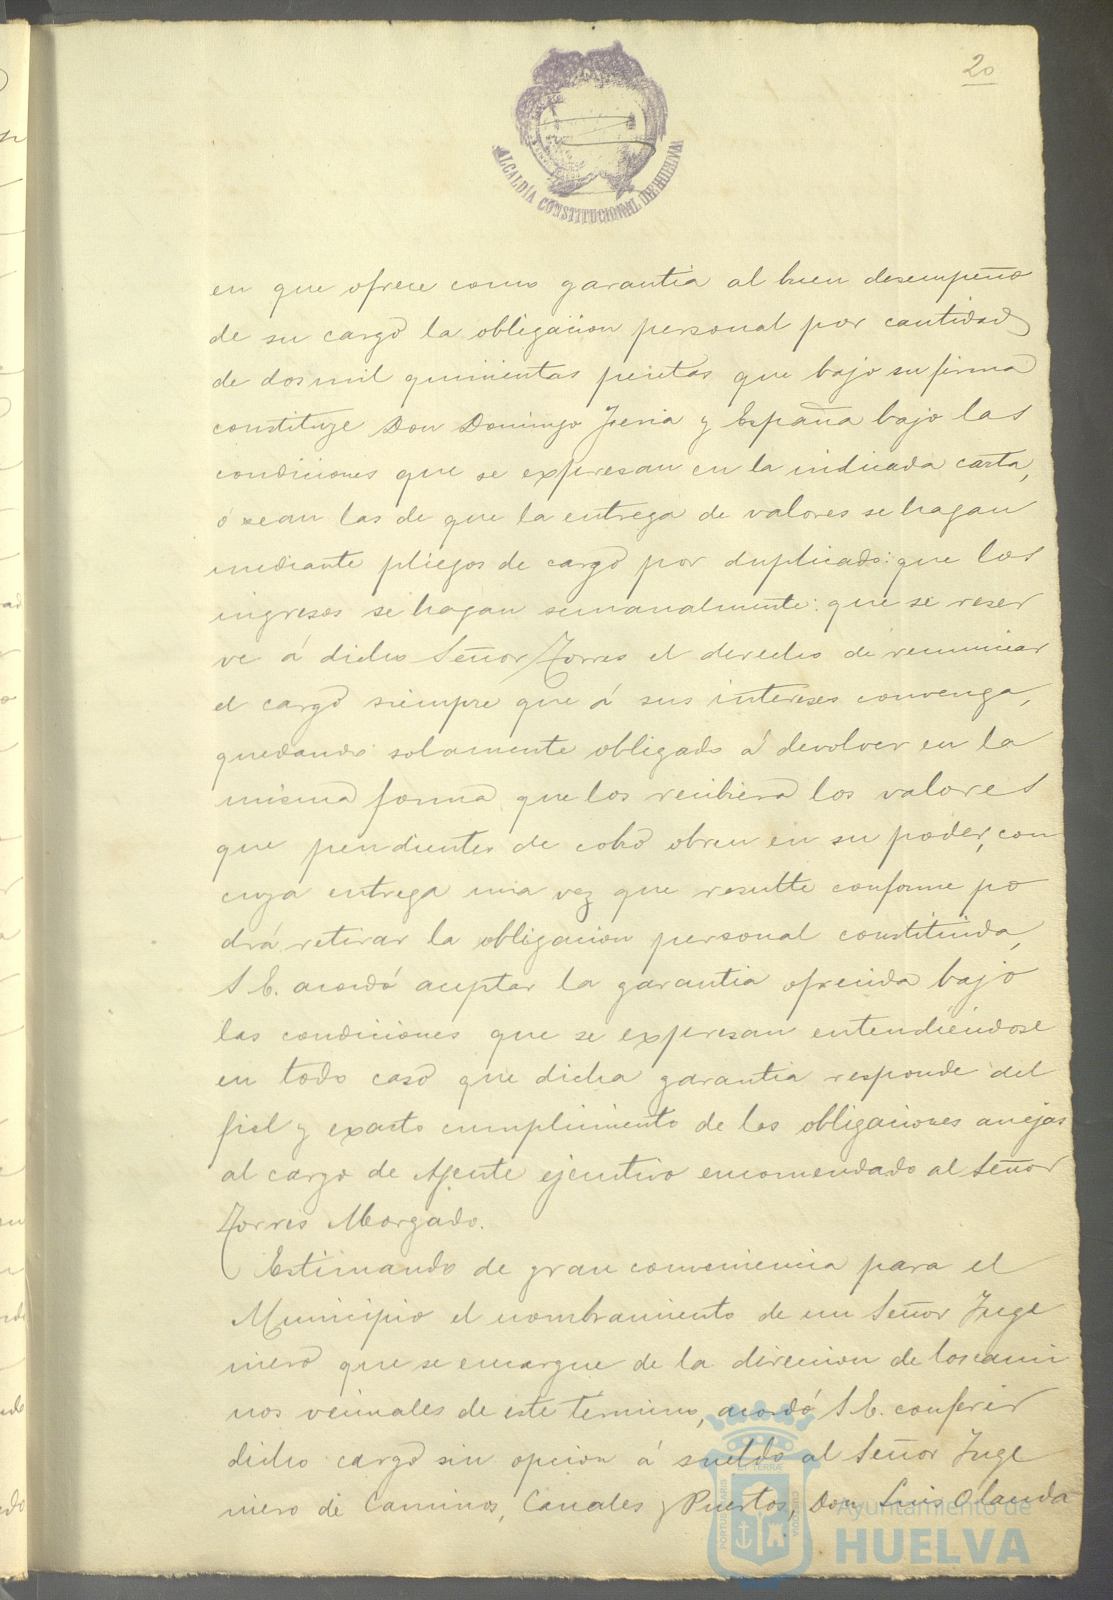 20
ALCALDÍA CONSTITUCIONAL DE HUELVA
en que ofrece como garantia al buen desempeño
de su cargo la obligacion personal por cantidad
de dos mil quinientas pesetas que bajo su firma
constituye Don Domingo y España bajo las
condiciones que se expresan en la indicada carta,
ó sean las de que la entrega de valores se hagan
mediante pliegos de cargo por duplicado: que los
ingresos se hagan semanalmente: que se reser
ve á dicho Señor Torres el derecho de renunciar
el cargo siempre que á sus intereses convenga,
quedando solamente obligado á devolver en la
misma forma que los recibiera los valores
que pendientes de cobro obren en su poder, con
cuya entrega una vez que resulte conforme po
drá retirar la obligacion personal constituida,
S E. acordó aceptar la garantia ofrecida bajo
las condiciones que se expresan entendiéndose
en todo caso que dicha garantia responde del
fiel y exacto cumplimiento de las obligaciones anejas
al cargo de Agente ejecutivo encomendado al Señor
Torres Morgado.
Estimando de gran conveniencia para el
Municipio el nombramiento de un Señor Inge
niero que se encargue de la direccion de los cami
nos vecinales de este termino, acordó S E. conferir
dicho cargo sin opcion á sueldo al Señor Inge
niero de Caminos, Canales y Puertos, Don Luis Olanda
Ayuntamiento de
HUELVA